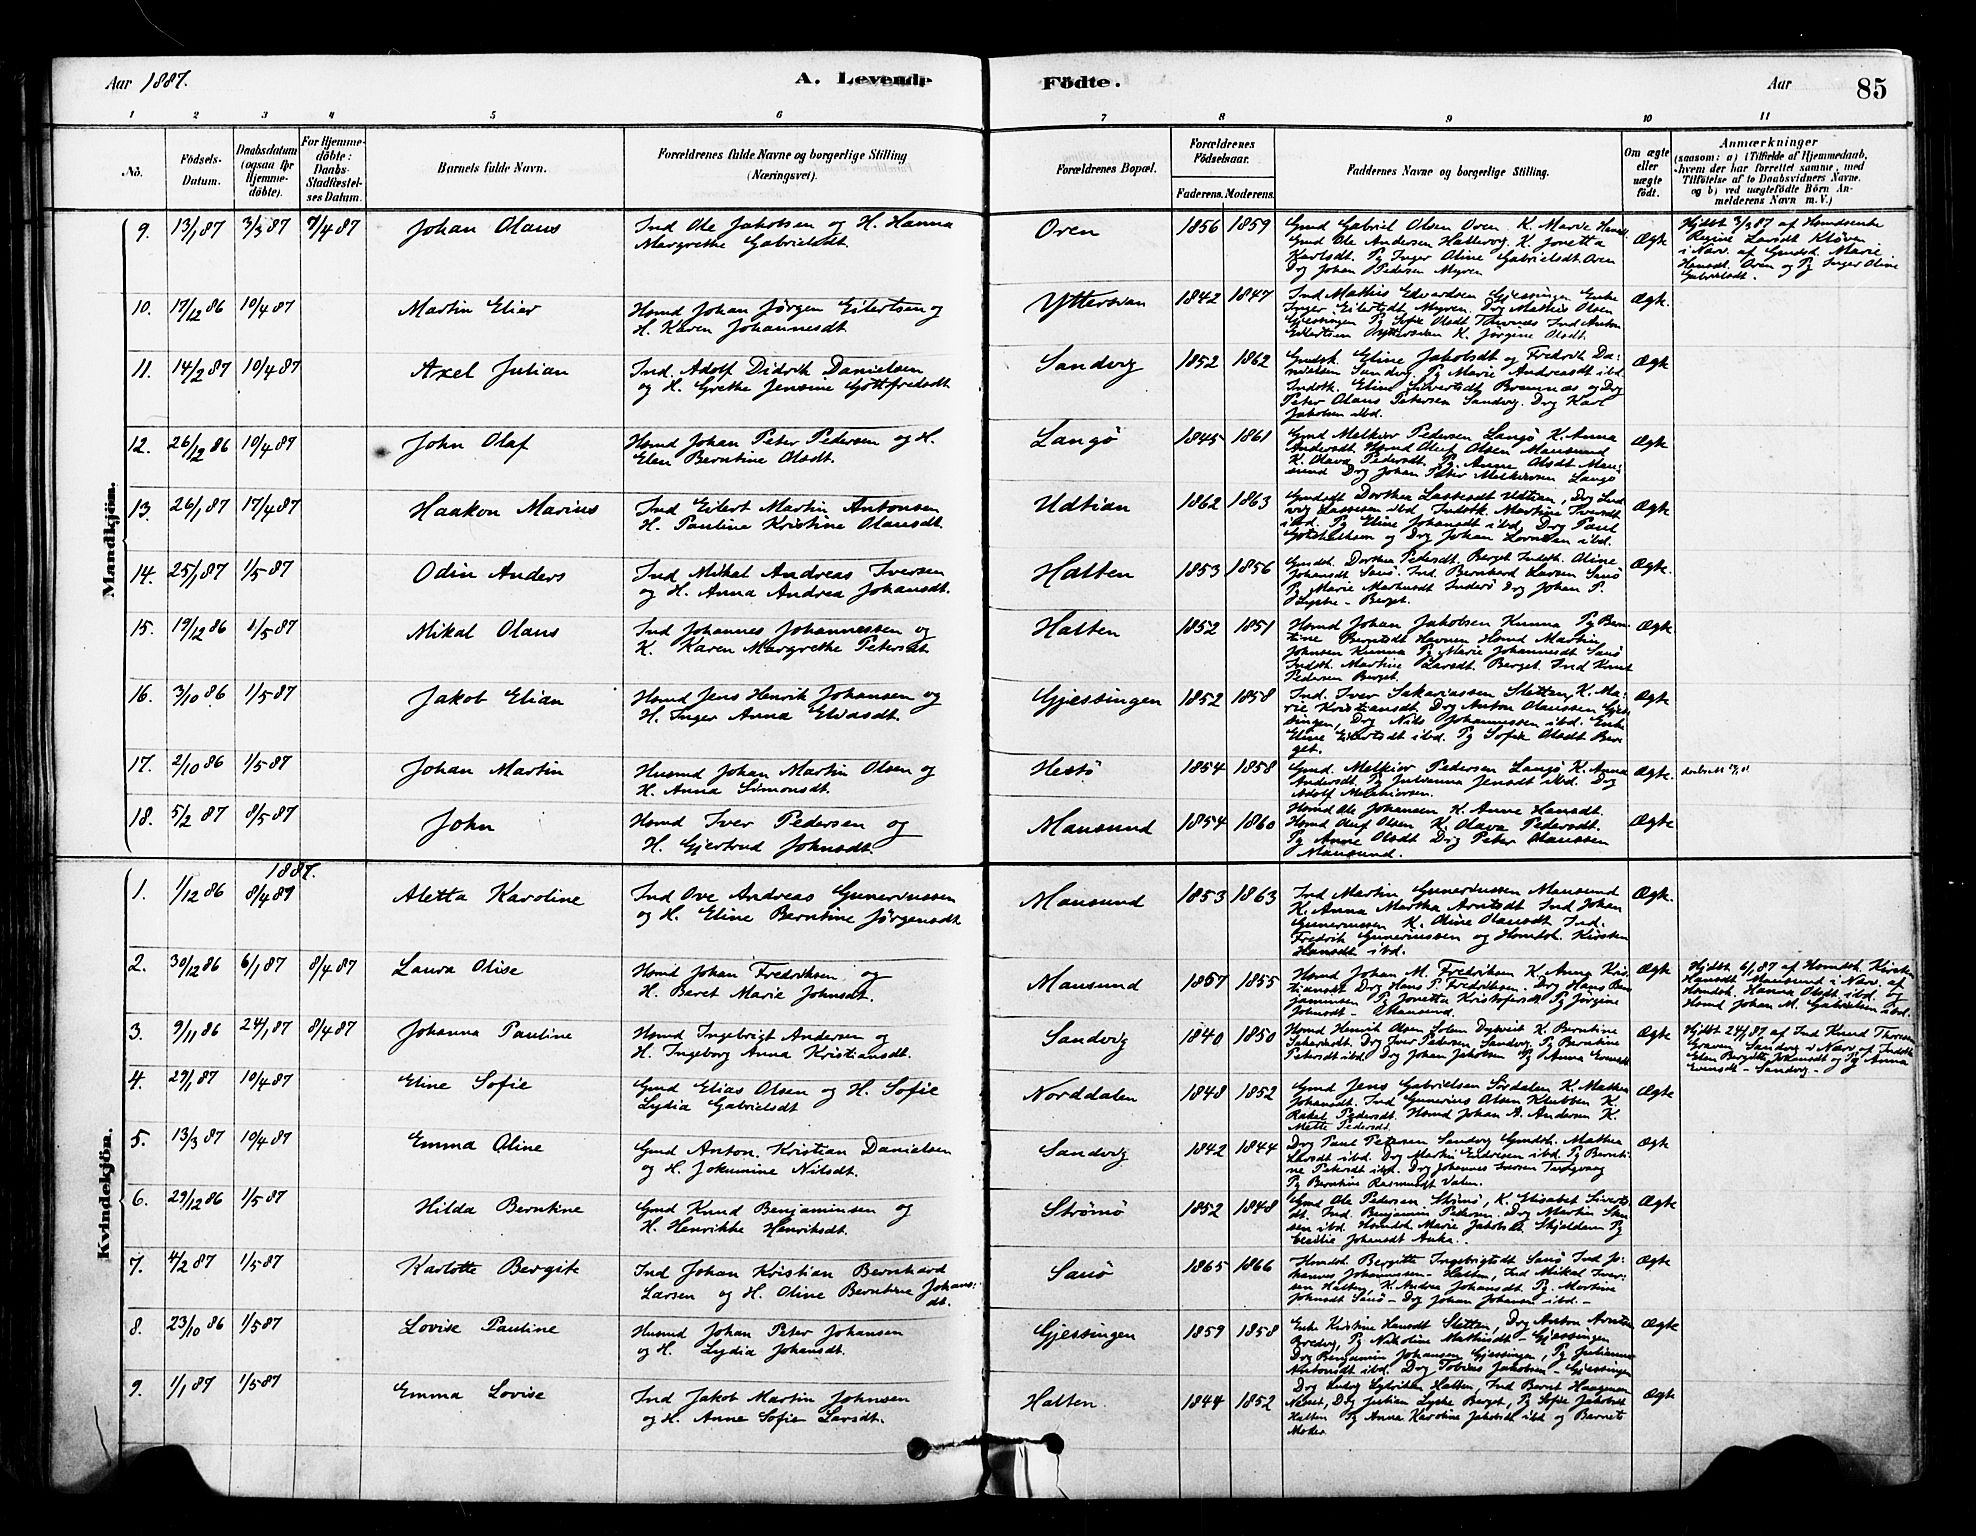 Aar 1887.
A. Levende
Födte.
Aar
85
1 2 3 4 5 6 7 8 9 10 11
No.
Födsels-Datum.
Daabsdatum (ogsaa for Hjemme-döbte).
For Hjemme-döbte: Daabs-Stadfæstel-ses Datum.
Barnets fulde Navn.
Forældrenes fulde Navne og borgerlige Stilling (Næringsvei).
Forældrenes Bopæl.
Forældrenes Födselsaar.
Faderens. Moderens.
Faddernes Navne og borgerlige Stilling.
Om ægte eller uægte födt.
Anmærkninger
(saasom: a) i Tilfælde af Hjemmedaab, hvem der har forrettet samme, med Tilföielse af to Daabsvidners Navne, og b) ved uægtefödte Börn An-melderens Navn m. V.)
Mandkjön.
9. 13/1 87 3/3 87 7/4 87 Johan Olaus
Ind Ole Jakobsen og H. Hanna
Margrethe Gabrielsdt.
Oren 1856 1859
Gmd Gabriel Olsen Oren K. Marie Hansdt.
Gmd Ole Andersen Hallevog K. Jonetta
Karlsdt. Pg Inger Oline Gabrielsdt. Oren
Drg Johan Pedersen Myren
Ægte
Hjdbt 3/3 87 af Hsmdsenke
Regine Larsdt Kløven
i Nærv. af Gmdsk. Marie
Hansdt. Oren og Pg Inger Oline
Gabrielsdt.
10. 17/12 86 10/4 87 Martin Elier
Hsmd Johan Jørgen Eilertsen og
H. Karen Johannesdt
Yttersian 1842 1847
Ind Mathis Edvardsen Gjessingen Enke
Inger Eilertsdt Myren. Drg Mathis Olsen
Gjessingen Pg Sofie Olsdt
Eilertsen Yttersian K. Jørgine Olsdt.
Ægte.
11. 14/2 87 10/4 87 Axel Julian
Ind. Adolf Didrik Danielsen
og H. Grethe Jensine Gottfredsdt
Sandvig 1852 1862
Gmdsk. Eline Jakobsdt og Fredrik Da-
nielsen Sandvig. Pg Marie Andreasdt ibd.
Indstk. Eline Sivertsdt Bremnæs og Drg
Peter Olaus Petersen Sandvig. Drg Karl
Jakobsen ibd.
Ægte
12. 26/12 86 10/4 87 John Olaf
Hsmd Johan Peter Pedersen og H.
Elen Berntine Olsdt.
Langø 1845 1861
Gmd Melkior Pedersen Langø K. Anna
Andersdt. Hsmd Oluf Olsen Mausund
K. Olava Pedersdt. Pg. Anne Olsdt Mau-
sund Drg Johan Peter Melkiorsen Langø
Ægte
13. 26/1 87 17/4 87 Haakon Marius
Ind Eilert Martin Antonsen
H. Pauline Kristine Olausdt.
Udtian 1862 1863
Gmdsk Dorthea Lassesdt Udtian, Drg Lud
vig Lassesen ibd. Indstk. Martine Iversdt
ibd. Pg Eline Johansdt ibd. Drg Paul
Gotshalksen og Drg Johan Lorntsen ibd.
Ægte
14. 25/1 87 1/5 87 Odin Anders
Ind Mikal Andreas Iversen
og H. Anna Andrea Johansdt.
Halten 1853 1856
Gmdsk. Dorthea Pedersdt. Berget Indstk. Oline
Johansdt Sauø. Ind. Bernhard Larsen Sauø
Pg Marie Markusdt Inderø Drg Johan P.
Lyske - Berget.
Ægte.
15. 19/12 86 1/5 87 Mikal Olaus
Ind Johannes Johannessen og
K. Karen Margrethe Petersdt.
Halten 1852 1851
Hsmd Johan Jakobsen Kunna Pg Bern-
tine Berntsdt Havnen Hsmd Martin
Johnsen Kunna Pg Marie Johannesdt Sauø
Indstk. Martine Larsdt. Berget. Ind Knut
Pedersen Berget.
Ægte.
16. 3/10 86 1/5 87 Jakob Elian
Hsmd Jens Henrik Johansen og
H. Inger Anna Eliasdt.
Gjessingen 1852 1858
Ind. Iver Sakariassen Sletten K. Ma-
rie Kristiansdt. Drg Anton Olaussen Gjes-
singen, Drg Nils Johannessen ibd. Enke
Eline Eilertsdt ibd. Pg Sofie Olsdt Ber-
get.
Ægte
17. 2/10 86 1/5 87 Johan Martin
Husmd Johan Martin Olsen og
H. Anna Simonsdt.
Hestø 1854 1858
Gmd. Melkior Pedersen Langø K. Anna
Andersdt. Pg Julianna Jensdt ibd. Drg
Adolf Melkiorsen.
Ægte.
18. 5/2 87 8/5 87 John
Hsmd Iver Pedersen og
H. Gjertrud Johnsdt.
Mausund 1854 1860
Hsmd Ole Johansen K. Anne Hansdt.
Hsmd Oluf Olsen K. Olava Pedersdt.
Pg Anne Olsdt Drg Peter Olaussen
Mausund.
Ægte
Kvindekjön.
1887.
1. 1/12 86 8/4 87 Aletta Karoline
Ind Ove Andreas Gunerinssen
og H. Eline Berntine Jørgensdt
Mausund 1853 1863
Ind Martin Gunerinssen Mausund
K. Anna Martha Arntsdt Ind Johan
Gunerinssen K. Oline Olausdt Ind.
Fredrik Gunerinssen og Hsmdsk. Kirsten
Hansdt ibd.
Ægte.
2. 30/12 86 6/1 87 8/4 87 Laura Olise
Hsmd Johan Fredriksen og
H. Beret Marie Johnsdt.
Mausund 1857 1855
Hsmd Johan M. Fredriksen K. Anna Kris-
tiansdt Drg Hans P. Fredriksen. Drg Hans Ben-
jaminsen Pg Jonetta Kristofersdt Pg Jørgine
Johnsdt - Mausund.
Ægte
Hjdbt 6/1 87 af Hsmdsk. Kirsten
Hansdt Mausund i Nærv. af
Hsmdsk. Hanna Olsdt ibd. og
Hsmd Johan M. Gabrielsen ibd.
3. 9/11 86 24/1 87 8/4 87 Johanna Pauline
Hsmd Ingebrigt Andersen og
H. Ingeborg Anna Kristiansdt.
Sandvig 1840 1850
Hsmd Henrik Olsen Solem Dyrvik K. Berntine
Sakariasdt. Drg Iver Pedersen Sandvig Pg Berntine
Petersdt ibd. Drg Johan Jakobsen Pg Anna Evensdt
Ægte
Hjdbt 24/1 87 af Ind Knud Thoresen
Graven Sandvig i Nærv. af Indstk
Elen Bergitte Johansdt og Pg Anna
Evensdt - Sandvig -
4. 29/1 87 10/4 87 Eline Sofie
Gmd Elias Olsen og H. Sofie
Lydia Gabrielsdt
Norddalen 1848 1852
Gmd Jens Gabrielsen Sørdalen K. Mathea
Johansdt. Ind Gunerius Olsen Klubben K.
Rakel Pedersdt. Hsmd Johan A. Andersen K.
Mette Pedersdt.
Ægte
5. 13/3 87 10/4 87 Emma Oline
Gmd Anton Kristian Danielsen
og H. Jokumine Nilsdt.
Sandvig 1842 1844
Drg Paul Petersen Sandvig Gmdsk. Mathea
Larsdt ibd. Drg Martin Endresen ibd. Pg Bernti-
ne Petersdt ibd. Drg Johannes Larsen
Pg Berntine Rasmusdt Valen.
Ægte
6. 29/12 86 1/5 87 Hilda Berntine
Gmd Knud Benjaminsen og
H. Henrikke Henriksdt.
Strømø 1852 1848
Gmd Ole Pedersen Strømø, K. Elisabet Siverts-
dt. Ind. Benjamin Pedersen. Drg Martin
sen ibd. Hsmdsk. Marie Jakobsdt Skjeldem Pg
Cecilie Johansdt Auka.
Ægte
7. 4/2 87 1/5 87 Karlotte Bergite
Ind Johan Kristian Bernhard
Larsen og H. Oline Berntine Johans-
dt.
Sauø 1865 1866
Hsmdsk. Bergitte Ingebrigtsdt Sauø Ind Jo-
hannes Johannessen - Halten, Ind Mikal Iver-
sen Halten K. Andrea Johansdt. Pg. Martine
Johnsdt Sauø - Drg Johan Johansen ibd. -
Ægte
8. 23/10 86 1/5 87 Lovise Pauline
Husmd Johan Peter Johansen
og H. Lydia Johansdt.
Gjessingen 1859 1858
Enke Kristine Hansdt Sletten, Drg Anton Arntsen
Bredvig, Pg Nikoline Mathisdt - Gjessingen
Drg Benjamin Johansen Gjessingen, Pg Julianna
Antonsdt ibd. Drg Tobias Jakobsen - Gjessingen
Ægte
9. 1/1 87 1/5 87 Emma Lovise
Ind Jakob Martin Johnsen
og H. Anne Sofie Larsdt.
Halten. 1844 1852
Drg Ludvig Lydriksen Halten, Ind Bernt Haagensen
Næsset, Drg Julian Lyske Berget, Pg Sofie Jakobsdt
Halten Pg Anna Karoline Jakobsdt ibd og Barnets
Moder.
Ægte